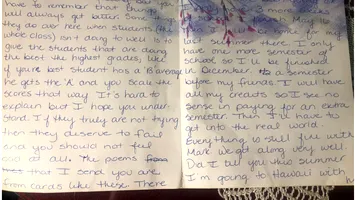 have to remember that
will always get better. Some
they do over here when students (the
whole class) isn't doing so well is to
give the students that are doing
the best the highest grades, like
if your best student has a 75 average
he gets the A and you scale the
scores that way. It's hard to
explain but I hope you under
stand. If they truly are not trying
then they deserve to fail
and you should not feel
at all. The poems
that I send you are
from cards like these. There
more
for my
last summer there. I only
have one more semester of
school so I'll be finished
in December. a semester
before my friends. I will have
all my credits so I see no
sense in paying for an extra
semester. Then I'll have to
get onto the real world.
Everything is still fine with
Mark we get along very well.
Did I tell you this summer
I'm going to Hawaii with